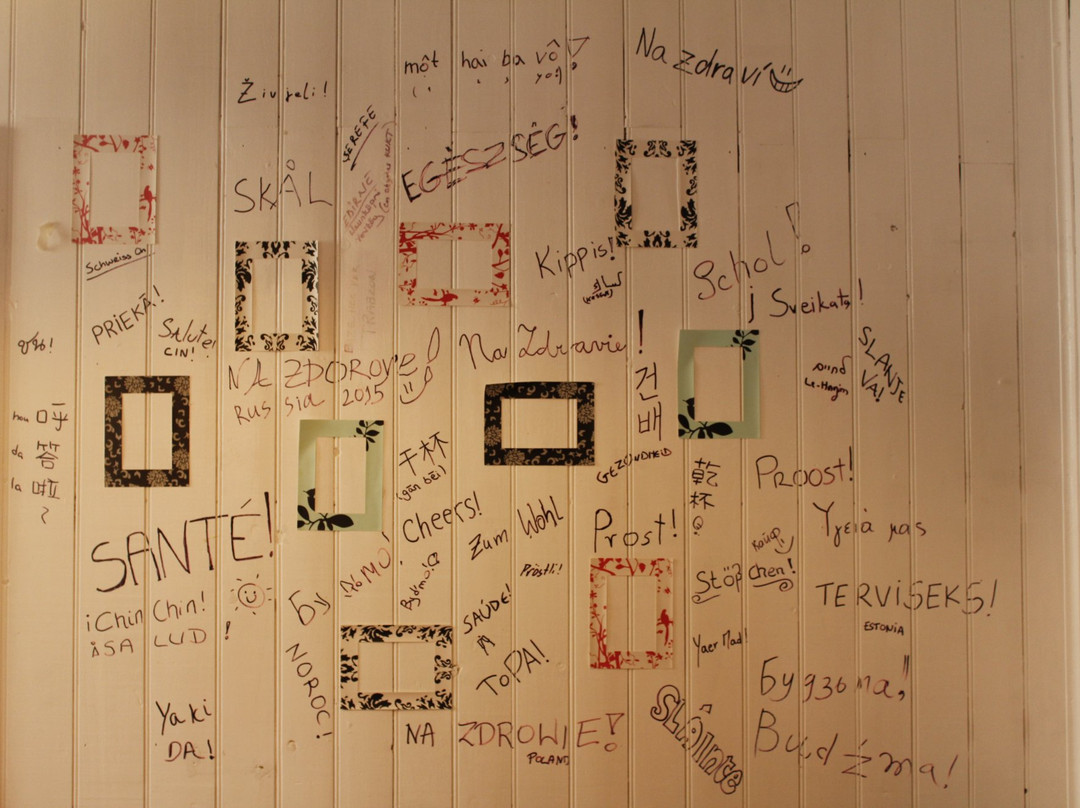 một hai ba vô!
Na zdraví
Živjeli!
ŞEREFE
EGÉSZSÉG!
SKÅL
Kippis!
Schol!
Schweiss on
į Sveikatą!
PRIEKĀ!
Salute!
CIN!
NA ZDOROV'E!
Russia 2015
Na Zdravie!
건배
SLANJE VA!
Le-Haym
呼
答
啦
da
la
干杯
(gān bēi)
GEZONDHEID
乾杯
PROOST!
SANTÉ!
Cheers!
Zum Wohl
Prost!
Υγειά μας
Pröstli!
Stöβchen!
TERVISEKS!
ESTONIA
¡Chin Chin!
¡SALUD!
Бу
SAÚDE!
Yaer Mad!
NOROC!
TOPA!
Будзьма!
Yaki
DA!
NA ZDROWIE!
POLAND
SLÁINTE
Budźma!